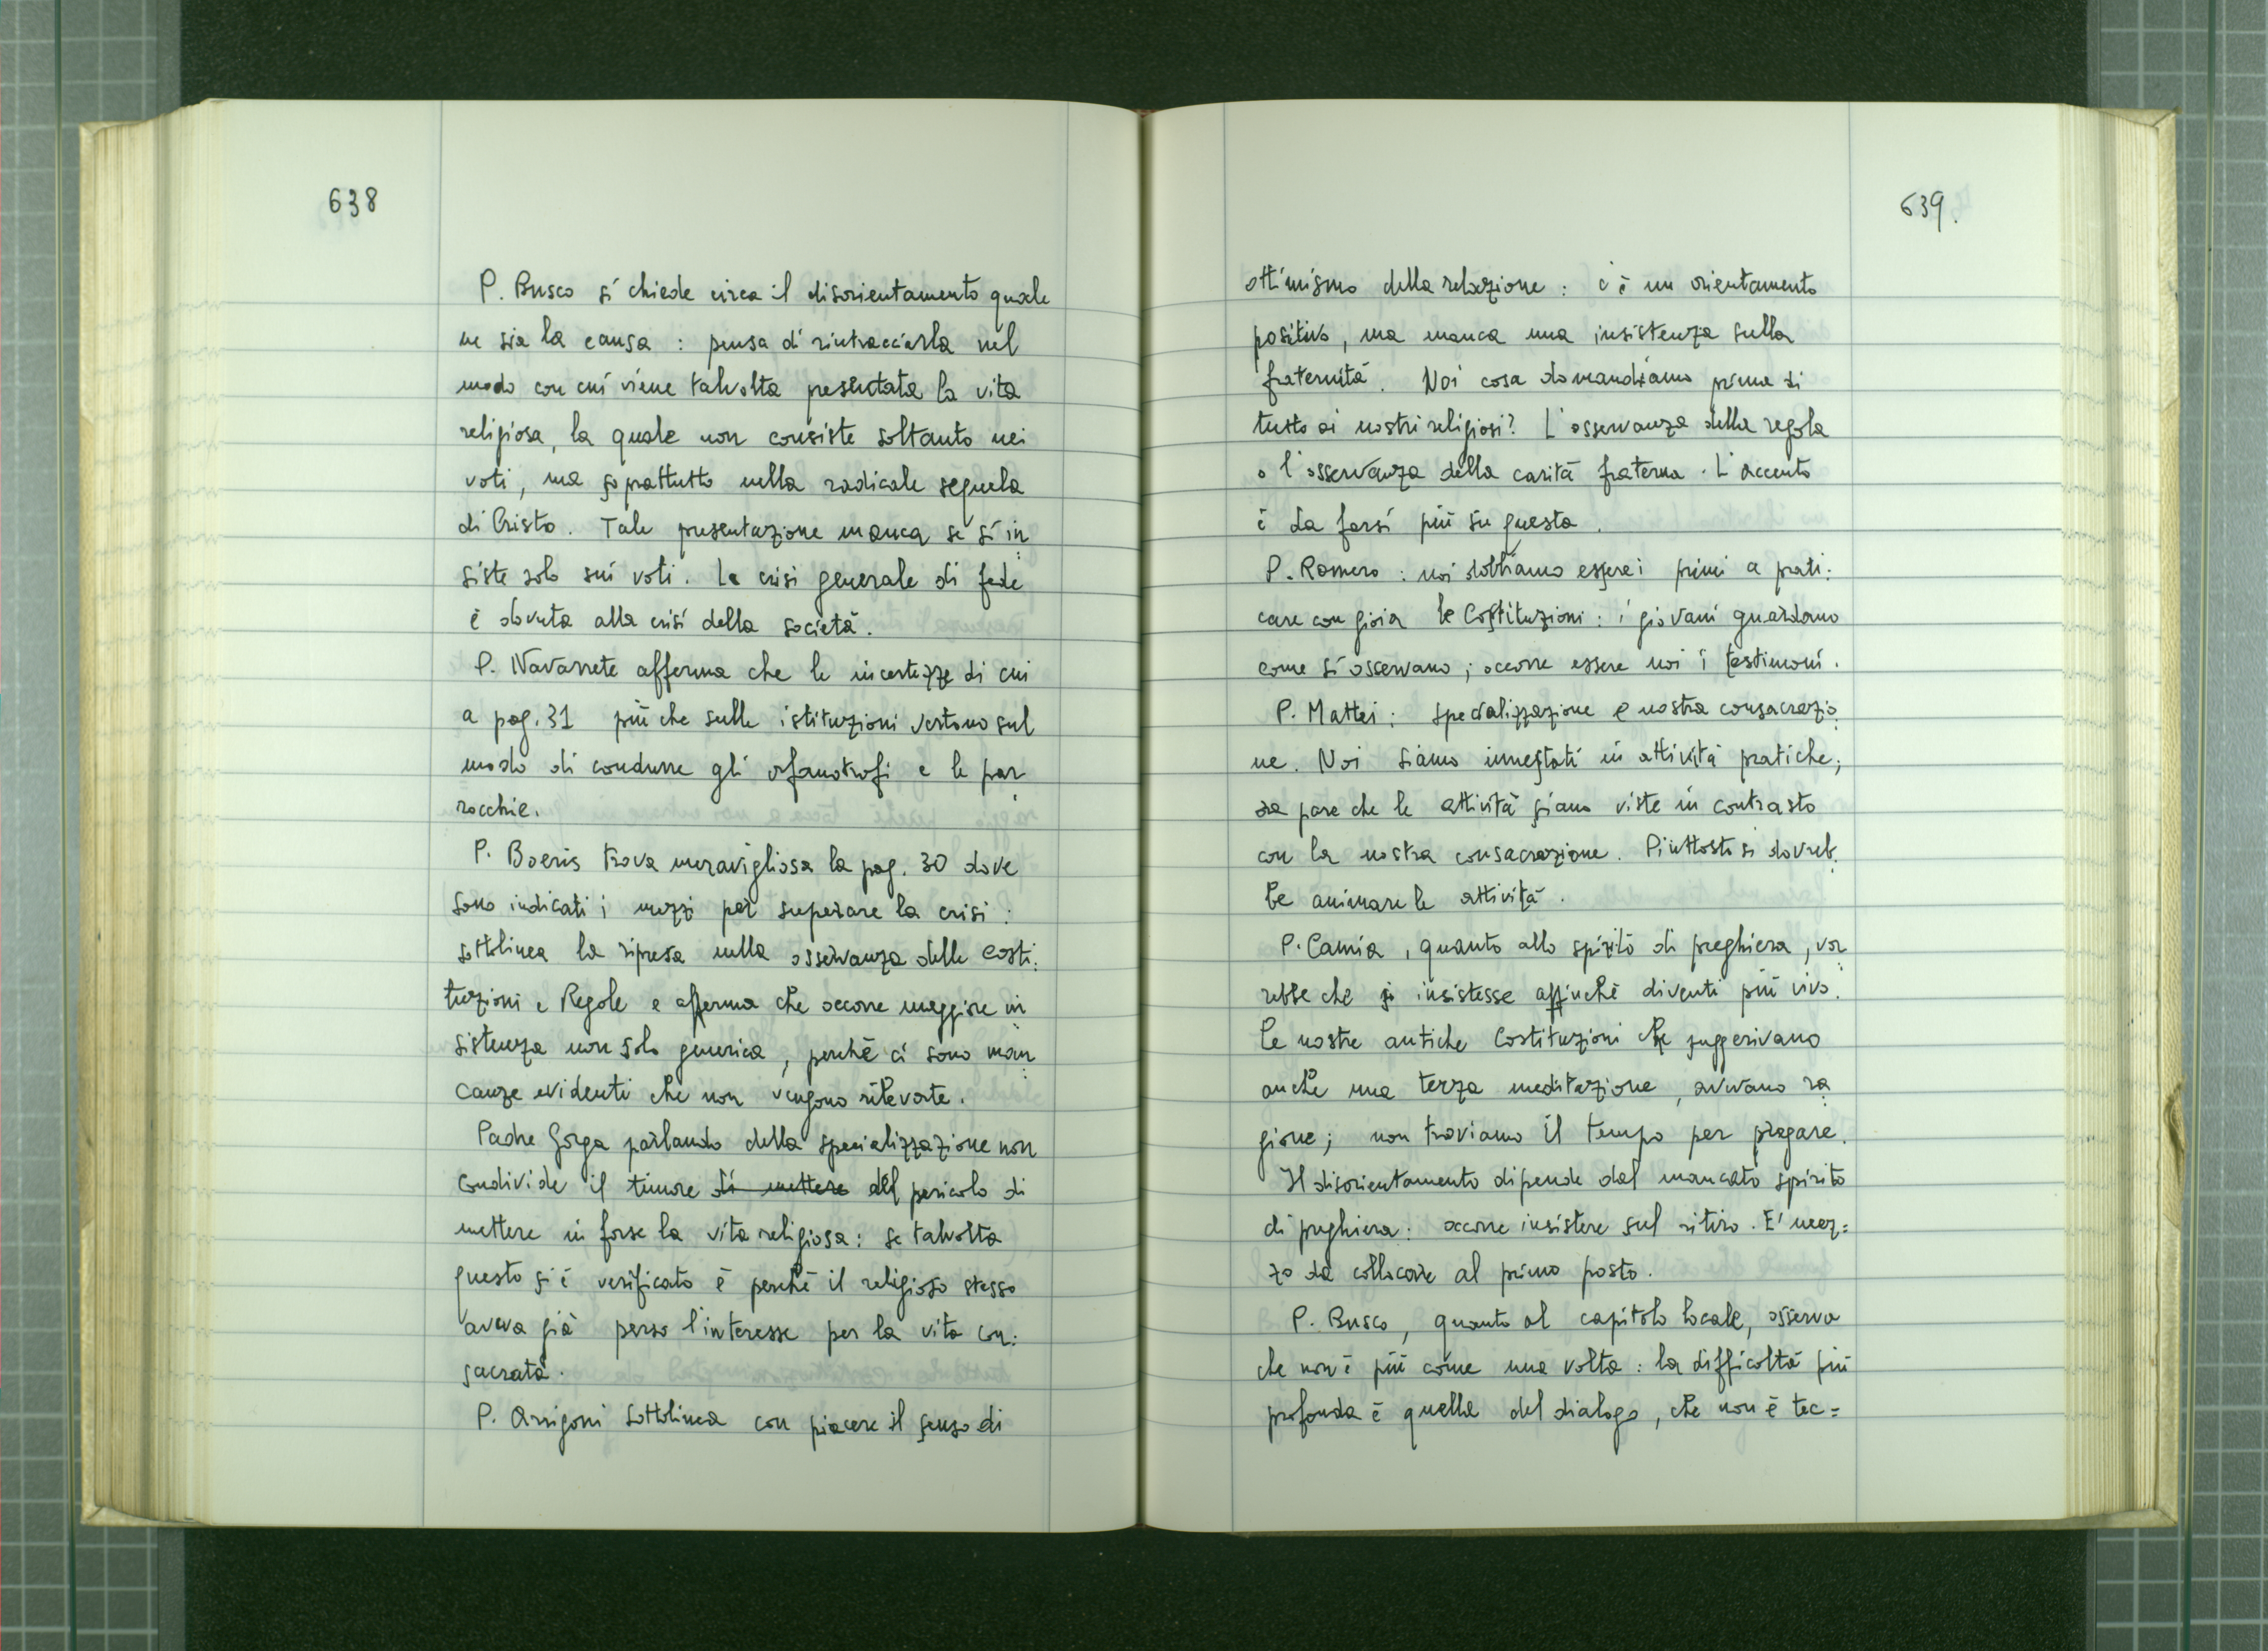 638
P. Busco si chiede circa il disorientamento quale
ne sia la causa : pensa di rintracciarla nel
modo con cui viene talvolta presentata la vita
religiosa, la quale non consiste soltanto nei
voti, ma soprattutto nella radicale sequela
di Cristo. Tale presentazione manca se si in
siste solo sui voti. La crisi generale di fede
è dovuta alla crisi della società.
P. Navarrete afferma che le incertezze di cui
a pag. 31 più che sulle istituzioni vertono sul
modo di condurre gli orfanotrofi e le par
rocchie.
P. Boeris trova meravigliosa la pag. 30 dove
sono indicati i mezzi per superare la crisi :
sottolinea la ripresa nella osservanza delle Costi:
tuzioni e Regole e afferma che occorre maggiore in
sistenza non solo generica, perchè ci sono man
canze evidenti che non vengono rilevate.
Padre Gorga parlando della specializzazione non
condivide il timore di mettere del pericolo di
mettere in forse la vita religiosa : se talvolta
questo si è verificato è perchè il religioso stesso
aveva già perso l'interesse per la vita con:
sacrata.
P. Arrigoni sottolinea con piacere il senso di
639.
ottimismo della relazione : c'è un orientamento
positivo, ma manca una insistenza sulla
fraternità. Noi cosa domandiamo prima di
tutto ai nostri religiosi? L'osservanza della regola
o l'osservanza della carità fraterna. L'accento
è da farsi più su questa.
P. Romero : noi dobbiamo essere i primi a prati:
care con gioia le Costituzioni : i giovani guardano
come si osservano ; occorre essere noi i testimoni.
P. Mattei : specializzazione e nostra consacrazio
ne. Noi siamo innestati in attività pratiche;
ora pare che le attività siano viste in contrasto
con la nostra consacrazione. Piuttosto si dovreb
be animare le attività.
P. Camia, quanto allo spirito di preghiera, vor
rebbe che si insistesse affinchè diventi più vivo.
Le nostre antiche Costituzioni che suggerivano
anche una terza meditazione, avevano ra
gione; non troviamo il tempo per pregare.
Il disorientamento dipende dal mancato spirito
di preghiera : occorre insistere sul ritiro. E' mez=
zo da collocare al primo posto.
P. Busco, quanto al capitolo locale, osserva
che non è più come una volta : la difficoltà più
profonda è quella del dialogo, che non è tec=